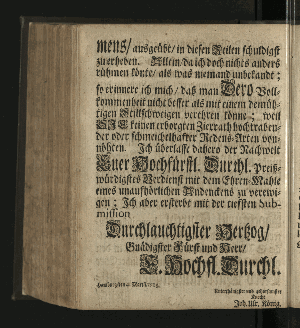 mens / ausgeübt / in diesen Zeilen schuldigst
zu erheben. Allein / da ich doch nichts anders
rühmen könte / als was niemand unbekandt;
so erinnere ich mich / daß man Dero Voll-
kommenheit nicht besser als mit einem demüh-
tigen Stillschweigen verehren könne; weil
SIE keinen erborgten Zierrath hochtraben-
der oder schmeichelhaffter Redens-Arten von-
nöhten. Ich überlasse dahero der Nachwelt
Euer Hochfürstl. Durchl. Preiß-
würdigstes Verdienst mit dem Ehren-Mahle
eines unaufhörlichen Andenckens zu verewi-
gen; Ich aber ersterbe mit der tieffsten Sub-
mission
Durchlauchtigster Hertzog /
Gnädigster Fürst und Herr /
E. Hochfl. Durchl.
Unterthänigster und gehorsamster
Knecht
Joh. Ulr. König.